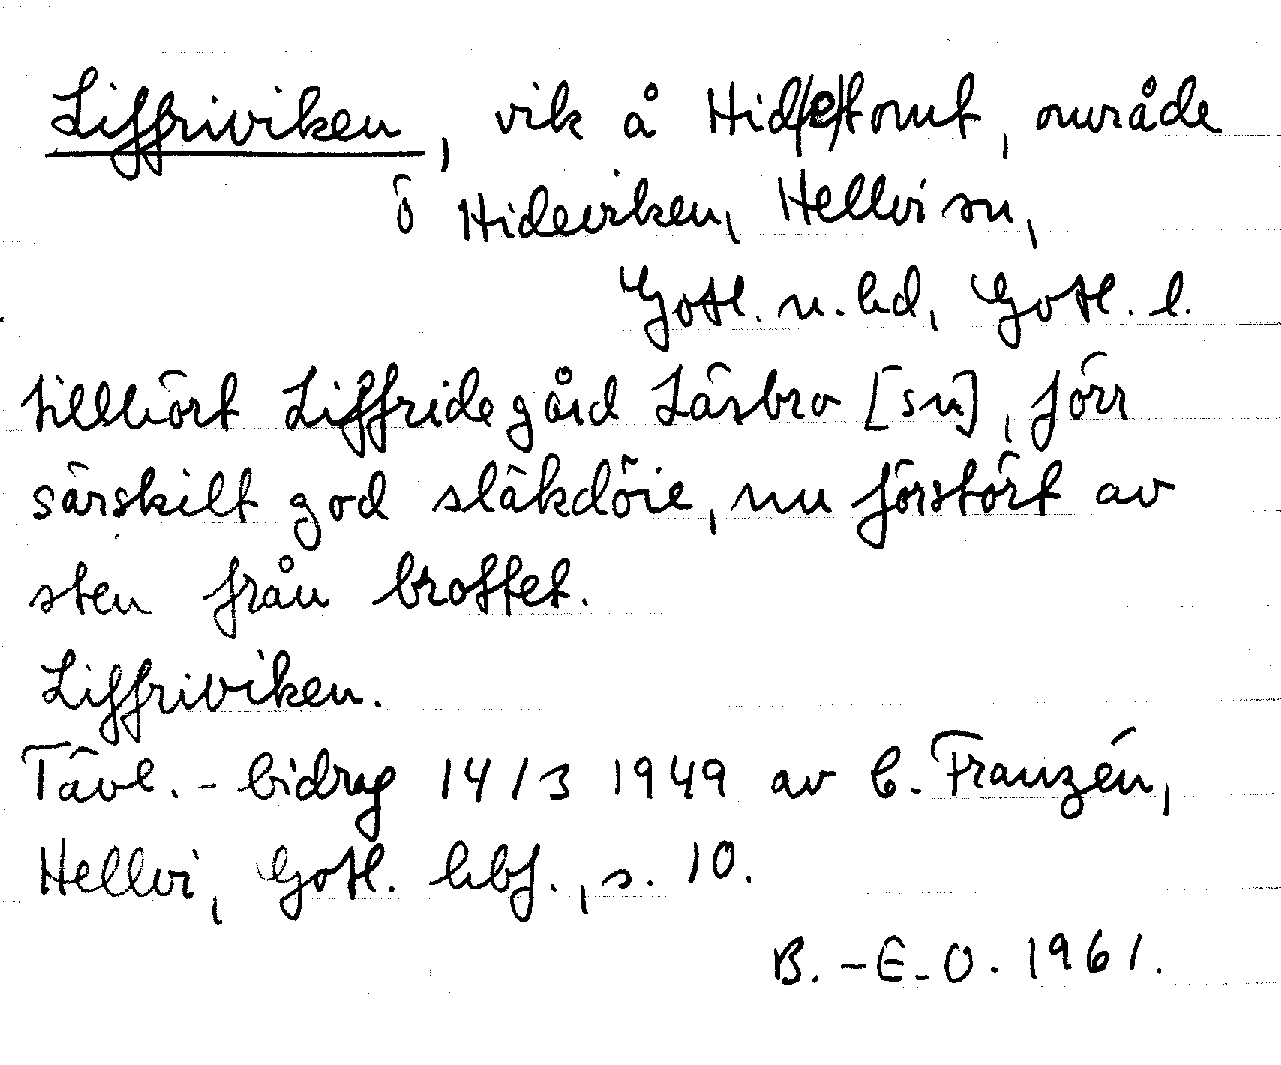 Liffriviken, vik å Hid(e)tomt, område
ö Hideviken, Hellvi sn,
Gotl. n. hd, Gotl. l.
tillhört Liffride gård Lärbro [sn], förr
särskilt god släkdöie, nu förstört av
sten från brottet.
Liffriviken.
Tävl.-bidrag 14/3 1949 av C. Franzén,
Hellvi, Gotl. hbf., s. 10.
B.-E-O. 1961.